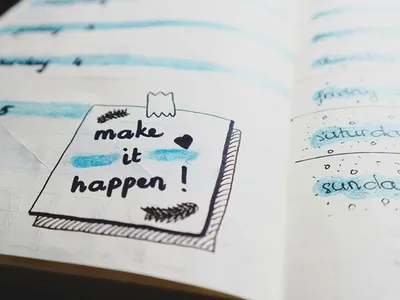 4
5
make
it
happen!
friday
saturda
sunda